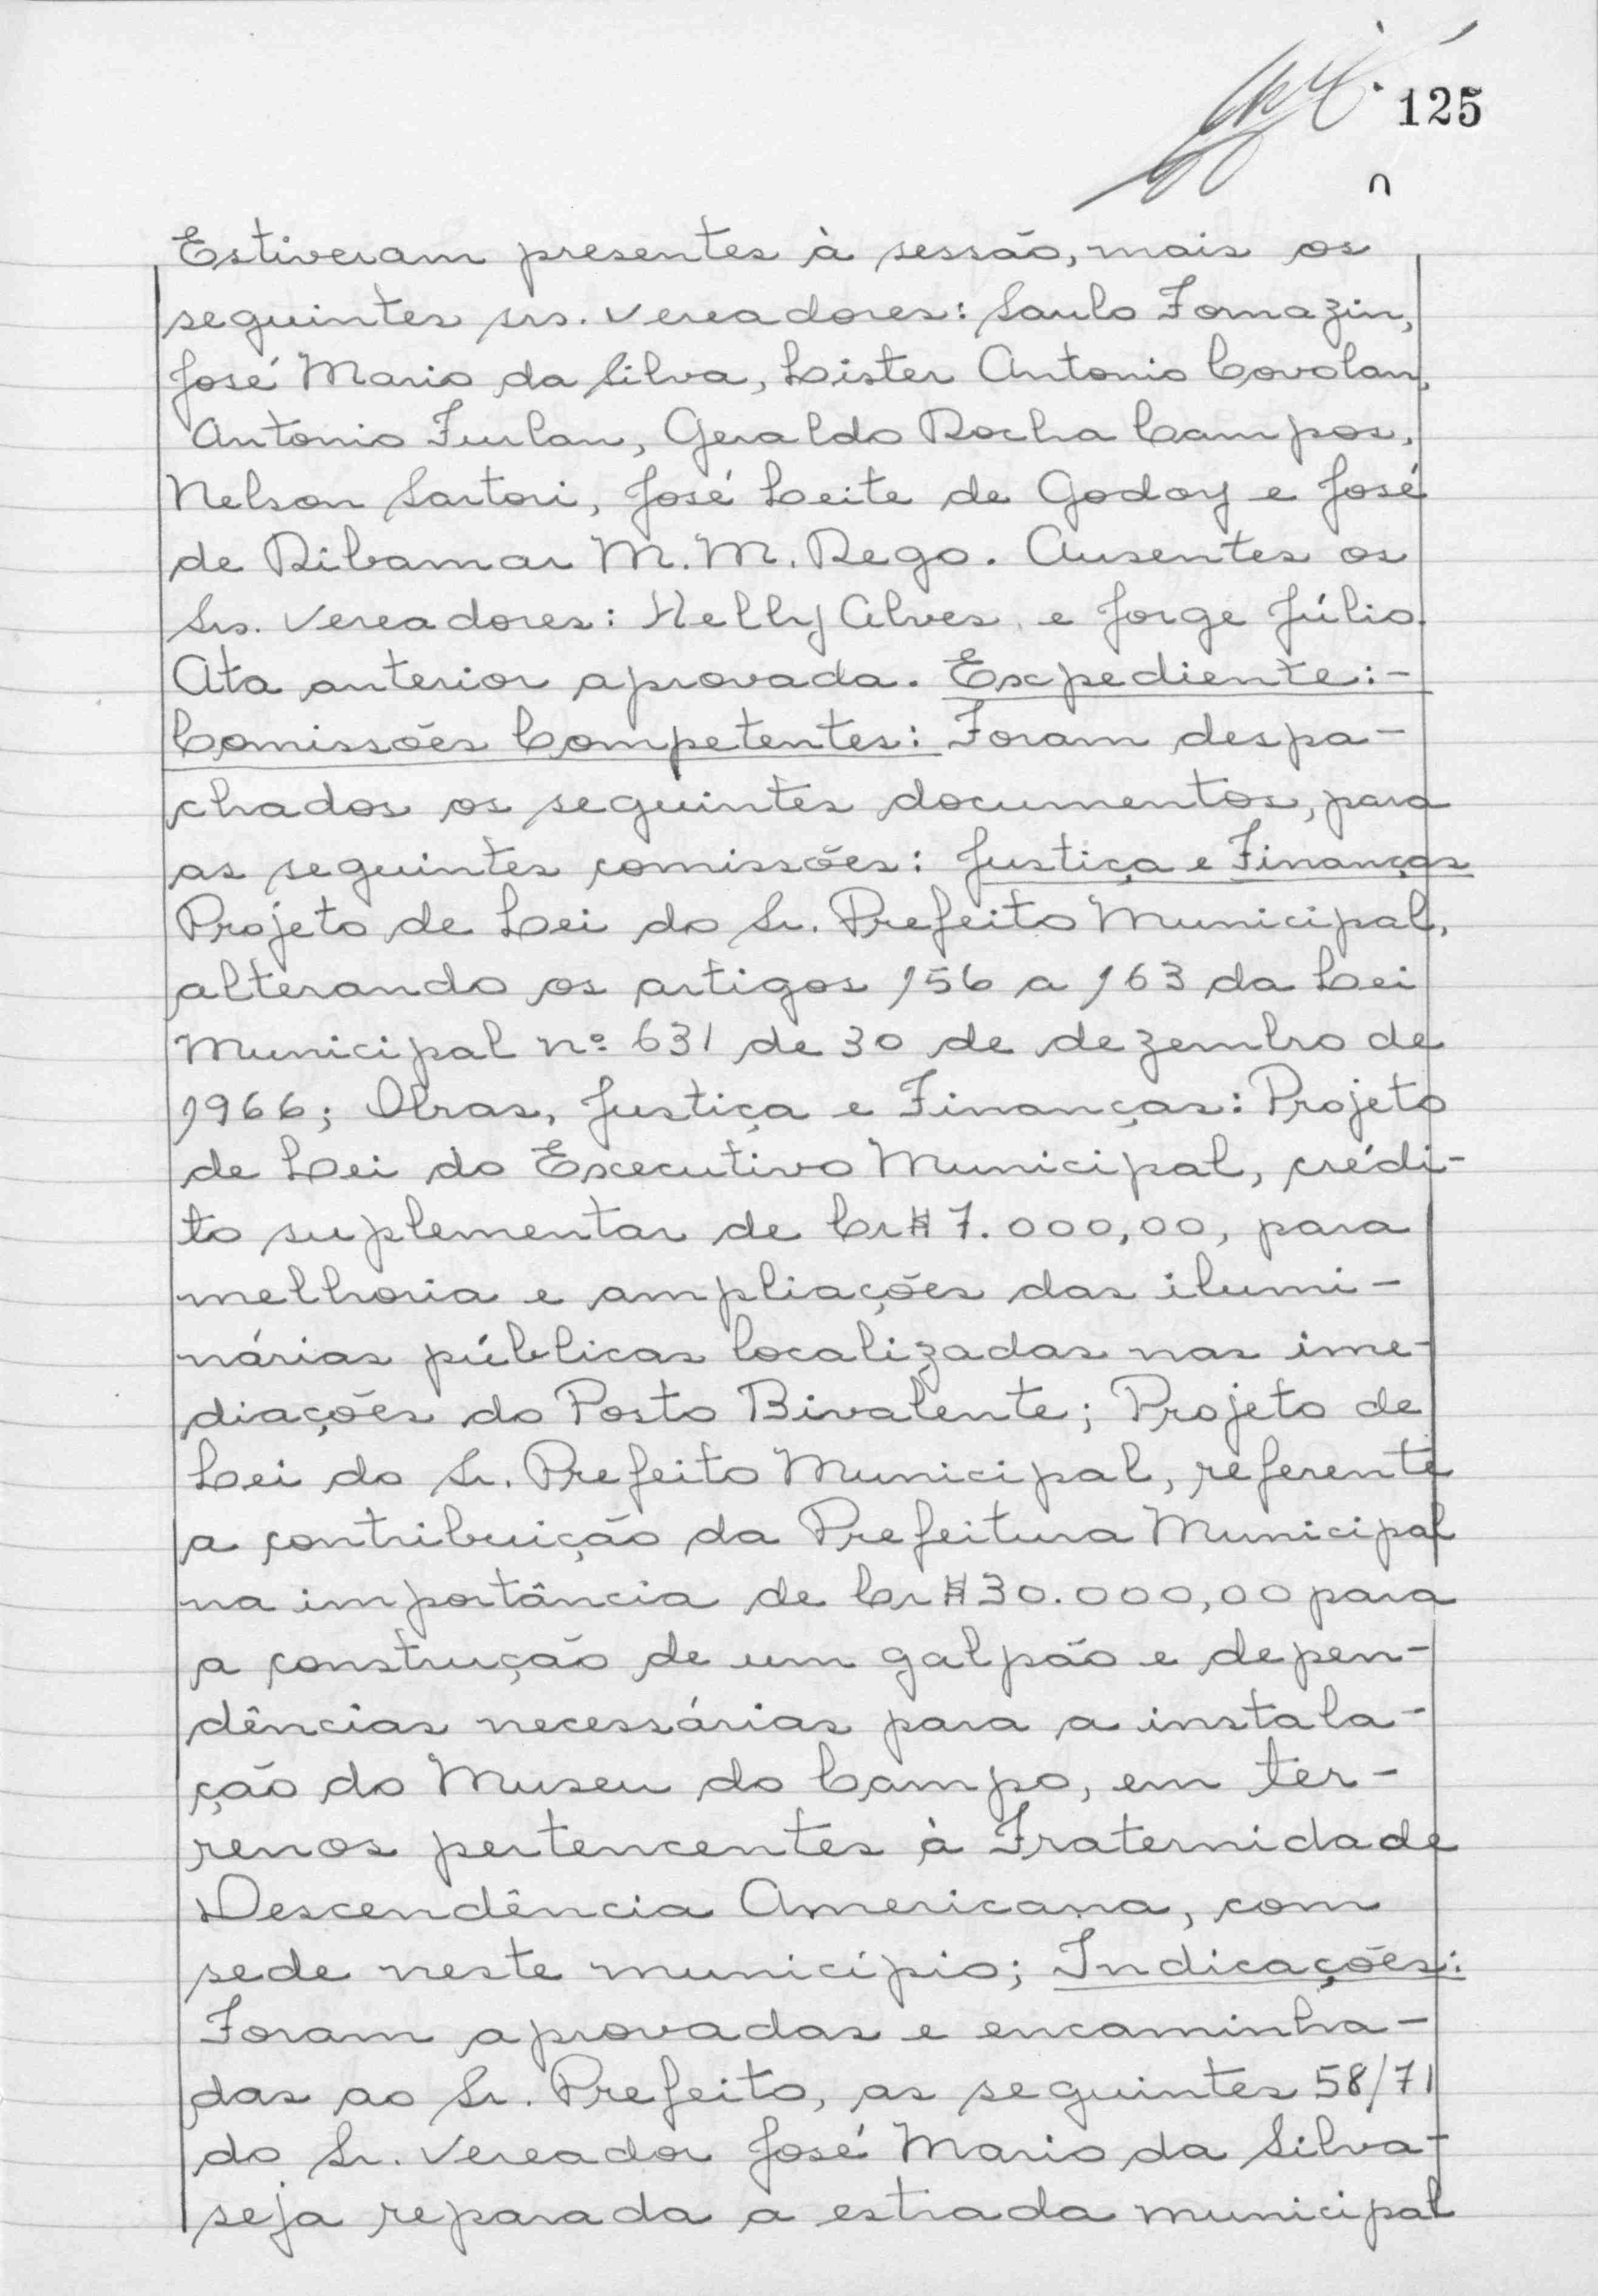 125
Estiveram presentes à sessão, mais os
seguintes srs. vereadores: Saulo Fornazin,
José Maria da Silva, Lister Antonio Covolan,
Antonio Furlan, Geraldo Rocha Campos,
Nelson Sartori, José Leite de Godoy e José
de Ribamar M. M. Rego. Ausentes os
Srs. Vereadores: Kelly Alves, e Jorge Júlio.
Ata anterior aprovada. Expediente:-
Comissões Competentes: Foram despa-
chados os seguintes documentos, para
as seguintes comissões: Justiça e Finanças
Projeto de Lei do Sr. Prefeito Municipal,
alterando os artigos 156 a 163 da Lei
Municipal nº 631 de 30 de dezembro de
1966; Obras, Justiça e Finanças: Projeto
de Lei do Executivo Municipal, crédi-
to suplementar de Cr$ 7.000,00, para
melhoria e ampliações das ilumi-
nárias públicas localizadas nas ime-
diações do Posto Bivalente; Projeto de
Lei do Sr. Prefeito Municipal, referente
a contribuição da Prefeitura Municipal
na importância de Cr$ 30.000,00 para
a construção de um galpão e depen-
dências necessárias para a instala-
ção do Museu do Campo, em ter-
renos pertencentes à Fraternidade
Descendência Americana, com
sede neste município; Indicações:
Foram aprovadas e encaminha-
das ao Sr. Prefeito, as seguintes 58/71
do Sr. Vereador José Maria da Silva-
seja reparada a estrada municipal